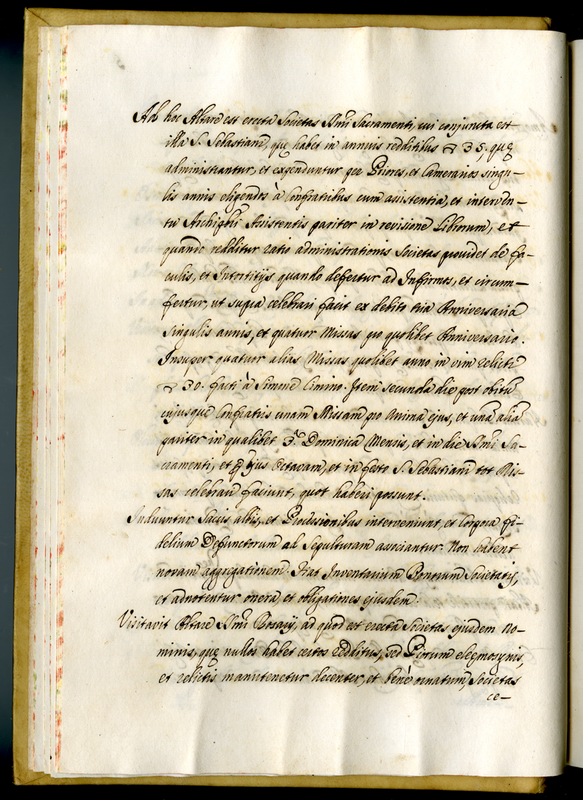 Ad hoc Altare est erecta Societas SSmi Sacramenti, cui conjuncta est
illa S. Sebastiani, quę habet in annuis redditibus 35, quę
administrantur, et expenduntur per Priores, et Camerarios singu-
lis annis eligendos à Confratribus cum assistentia, et interven-
tu Archipbri Assistentis pariter in revisione Librorum, et
quando redditur ratio administrationis Societas providet de fa-
culis, et Intortitijs quando defertur ad Infirmos, et circum-
fertur, ut supra celebrari facit ex debito tria Anniversaria
singulis annis, et quatuor Missas pro quolibet Anniversario.
Insuper quatuor alias Missas quolibet anno in vim relicti
30. facti à Simone Cimino. Item secunda die post obitu
cujusque Confratris unam Missam pro Anima ejus, et una alia
pariter in qualibet 3.a Dominica Mensis, et in die SSmi Sa-
cramenti, et p ejus octavam, et in festo S. Sebastiani tot Mis-
sas celebrari faciunt, quot haberi possunt.
Induuntur Saccis albis, et Processionibus interveniunt, et Corpora fi-
delium Defunctorum ad Sepulturam associantur. Non habent
novam aggregationem. Fiat Inventarium Bonorum Societatis,
et adnotentur onera, et obligationes ejusdem.
Visitavit Altare SSmi Rosarij, ad quod est erecta Societas ejusdem no-
minis, quę nullos habet certos redditus, sed Piorum elemosynis,
et relictis manutenetur decenter, et benè ornatum, Societas
ce-